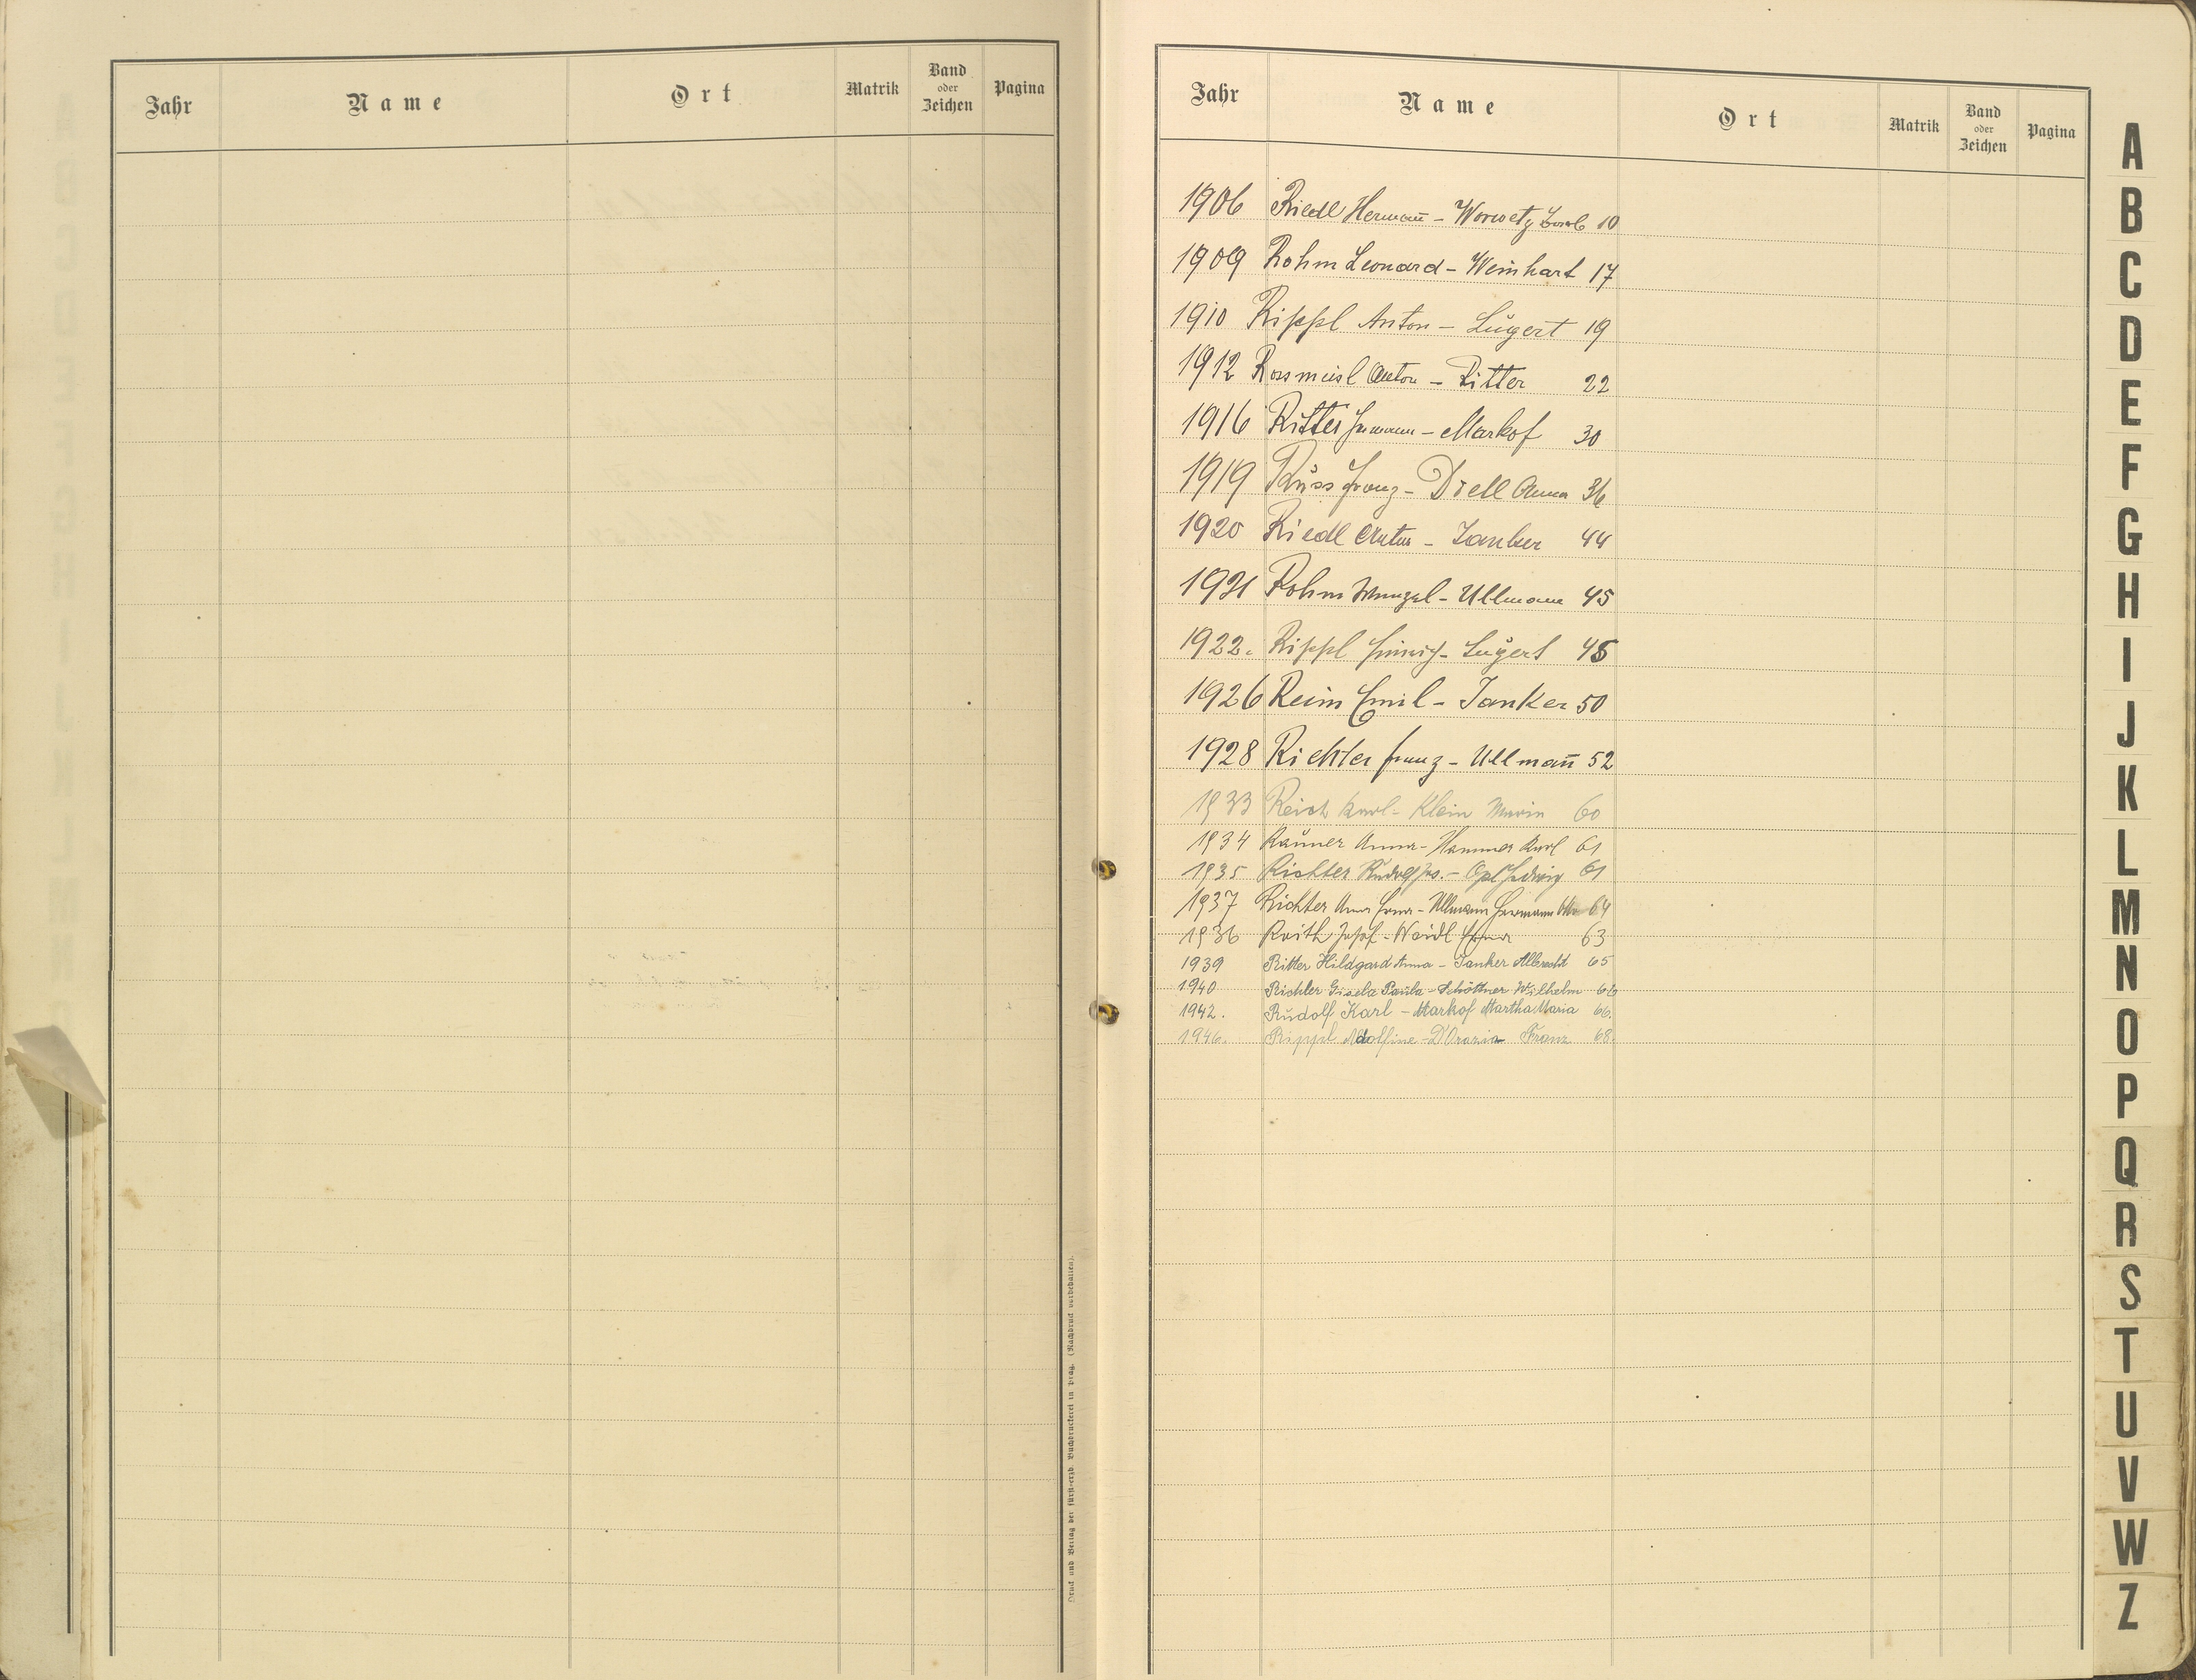 Jahr Name Ort Matrik Band oder Zeichen Pagina
Druck und Verlag der fürst-erzb. Buchdruckerei in Prag. (Nachdruck vorbehalten).
Jahr Name Ort Matrik Band oder Zeichen Pagina
1906 Riedl Hermañ – Worwetz 10
1909 Rohm Leonard – Weinhart 17
1910 Rippl Anton – Lugert 19
1912 Rossmeisl Anton – Ritter 22
1916 Ritter Hermann – Markof 30
1919 Russ Franz – Diell Anna 36
1920 Riedl Anton – Janker 44
1921 Rohm Wenzel – Ullmann 45
1922. Rippl Heinrich – Lugert 45
1926 Reim Emil – Janker 50
1928 Richter Franz – Ullmañ 52
1933 Reich Karl – Klein Maria 60
1934 Rauner Anna – Hammer Karl 61
1935 Richter Rudolf Jos. – Opl Hedwig 61
1937 Richter Anna – Ullmann Hermann 64
1936 Raith Josef – Weidl 63
1939 Ritter Hildgard Anna – Janker Albrecht 65
1940 Richter Gisela Paula – Schöttner Wilhelm 66
1942. Rudolf Karl – Markof Martha Maria 66.
1946. Rippl Adolfine – D'Orazio Franz 68.
A
B
C
D
E
F
G
H
I
J
K
L
M
N
O
P
Q
R
S
T
U
V
W
Z